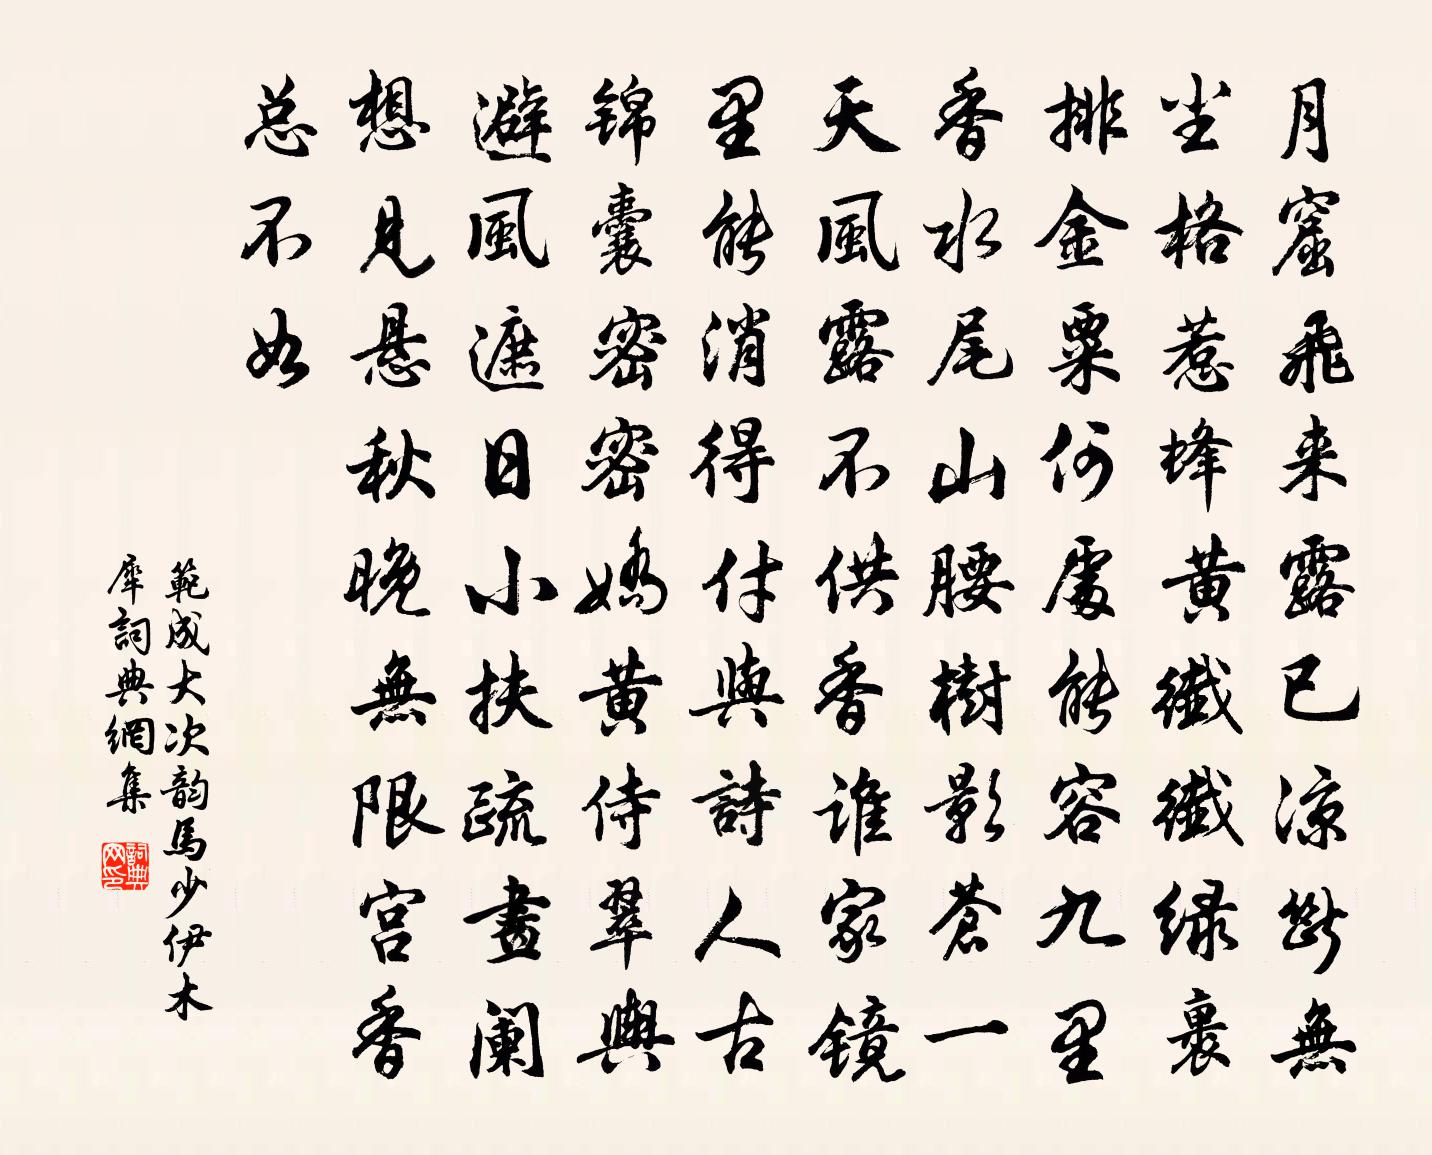 月窟飛来露已涼斷無
尘格惹蜂黄纖纖绿裹
排金粟何處能容九里
香水尾山腰樹影蒼一
天風露不供香谁家镜
里能消得付與詩人古
锦囊密密嬌黄侍翠輿
避風遮日小扶疏畫阑
想見悬秋晚無限宫香
总不如
範成大次韵馬少伊木
犀詞典網集
詞典
网印